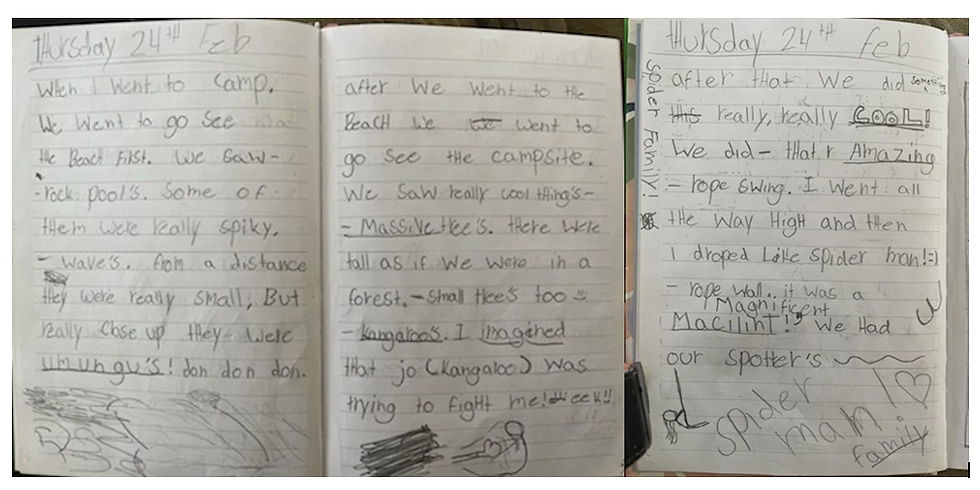 Thursday 24th Feb
When I went to camp.
We Went to go see
the Beach First. We saw-
-rock pool's. Some of
them were really spiky.
- wave's. from a distance
they were really small, But
really close up they were
umungu's! don don don.
after We went to the
Beach we we went to
go see the campsite.
We saw really cool thing's-
- Massive tree's. there were
tall as if we were in a
forest. - small tree's too
- kangaroo's. I imagened
that jo (kangaroo) was
trying to fight me! week!!
Thursday 24th Feb
Spider Family!
after that We did something
this really, really COOL!
We did- that r Amazing
- rope swing. I went all
the way High and then
I droped Like spider man!=)
- rope wall. it was a
Magnificent
Macilint! We Had
our spotter's
spider man I ♡
family